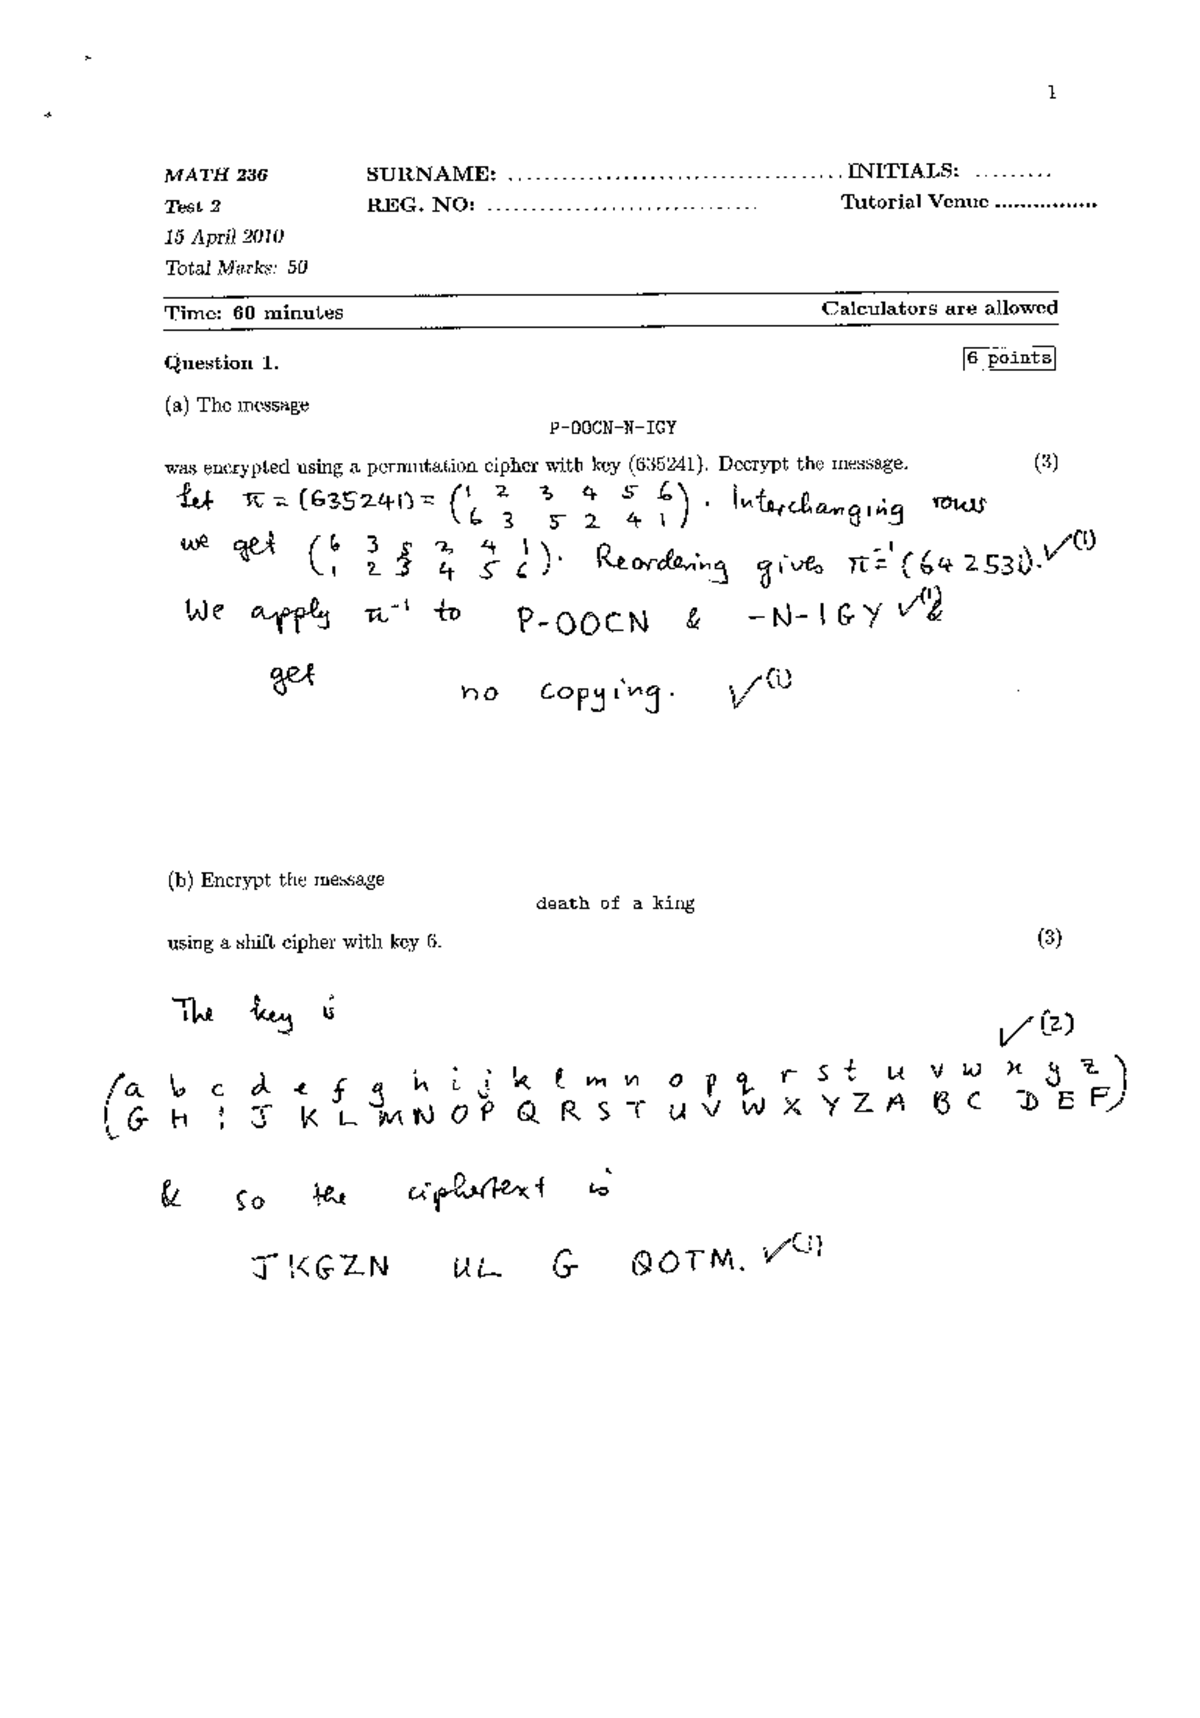 1
MATH 236 SURNAME: ..................................... INITIALS: .........
Test 2 REG. NO: .............................. Tutorial Venue ...............
15 April 2010
Total Marks: 50
Time: 60 minutes Calculators are allowed
Question 1. 6 points
(a) The message
P-OOCN-N-IGY
was encrypted using a permutation cipher with key (635241). Decrypt the message. (3)
Let π = (635241) = (1 2 3 4 5 6). Interchanging rows
6 3 5 2 4 1
we get (6 3 5 2 4 1). Reordering gives π⁻¹=(642531). ✓(1)
1 2 3 4 5 6
We apply π⁻¹ to P-OOCN & -N-IGY ✓(1) &
get no copying. ✓(1)
(b) Encrypt the message
death of a king
using a shift cipher with key 6. (3)
The key is
✓(2)
(a b c d e f g h i j k l m n o p q r s t u v w x y z)
(G H I J K L M N O P Q R S T U V W X Y Z A B C D E F)
& so the ciphertext is
JKGZN UL G QOTM. ✓(1)